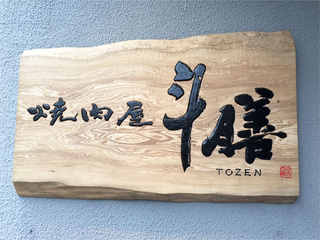 焼肉屋 斗膳
TOZEN